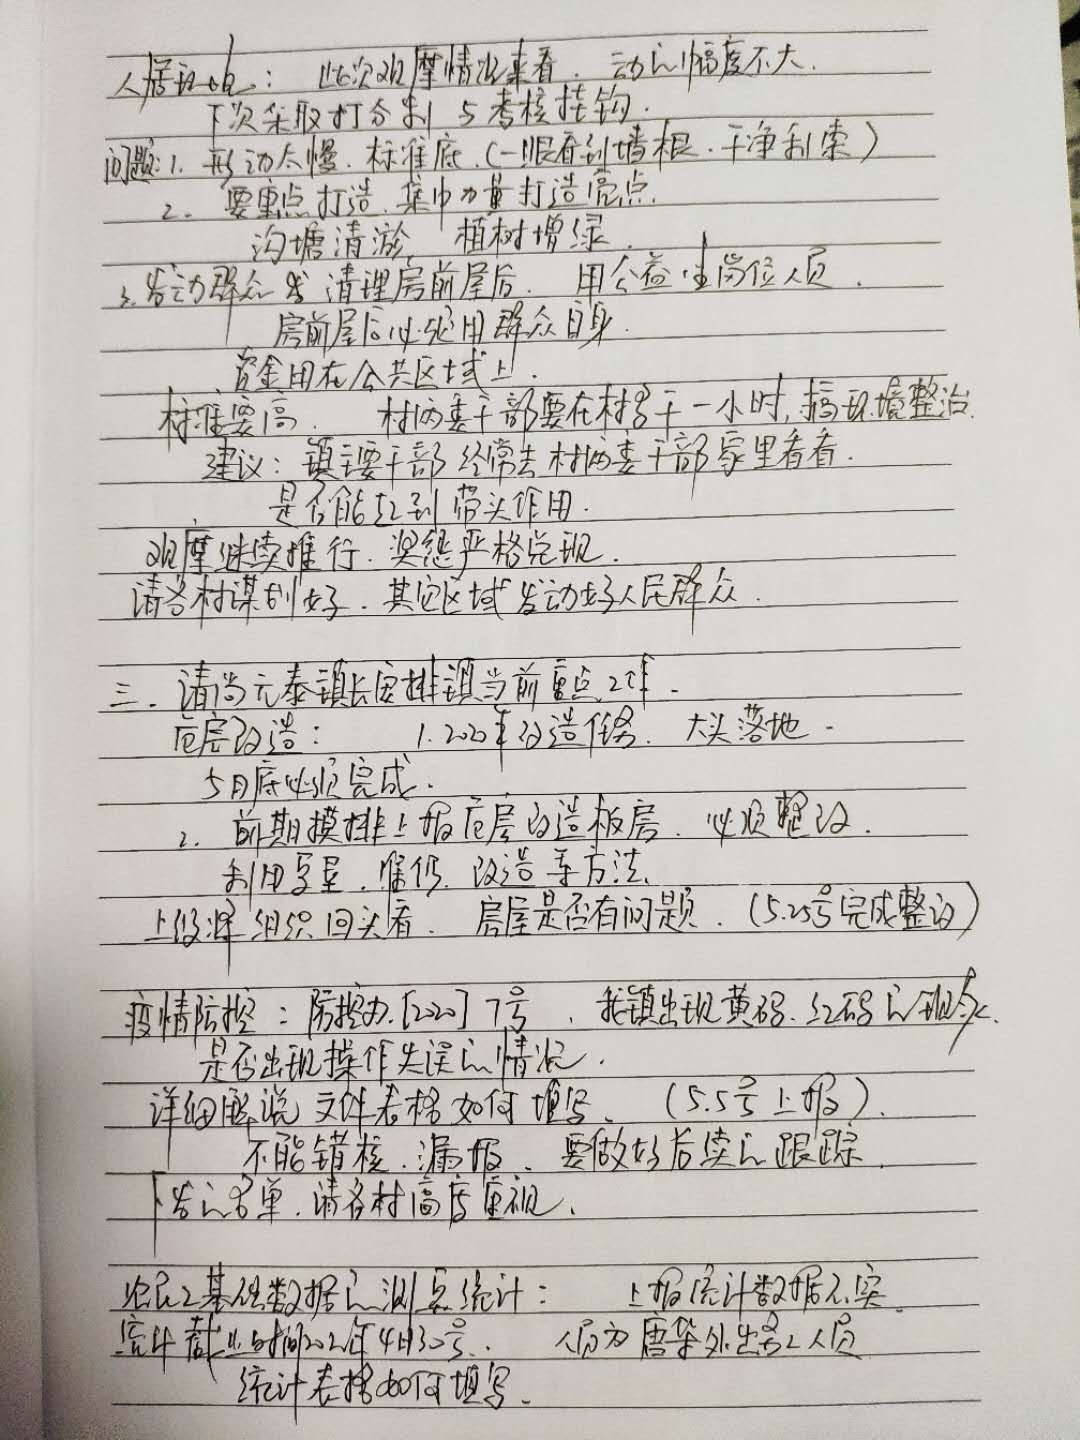 人居环境：此次观摩情况来看．动的幅度不大．
下次采取打分制与考核挂钩．
问题：1．行动太慢．标准底．（一眼看到墙根．干净利索）
2．要重点打造．集中力量打造亮点．
沟塘清淤 植树增绿．
3．发动群众 清理房前屋后．用公益性岗位人员．
房前屋后必须用群众自身．
资金用在公共区域上．
标准要高．村两委干部要在村多干一小时，搞环境整治．
建议：镇主要干部经常去村两委干部家里看看．
是否能起到带头作用．
观摩继续推行．奖惩严格兑现．
请各村谋划好．其它区域发动好人民群众．
三．请尚元泰镇长安排镇当前重点工作．
危房改造：1．2020年改造任务．大头落地．
5月底必须完成．
2．前期摸排上报危房改造板房．必须整改．
利用 ．改造等方法．
上级将组织回头看．房屋是否有问题．（5.25号完成整改）
疫情防控：防控办［2020］7号．我镇出现黄码．红码的
是否出现操作失误的情况．
详细解说文件表格如何填写．（5.5号上报）．
不能错核．漏报．要做好后续的跟踪．
下发的名单．请各村高度重视．
农民工基础数据的测 统计：上报统计数据不实．
统计截止时间 年4月30号．人员为 外出务工人员
统计表格如何填写．